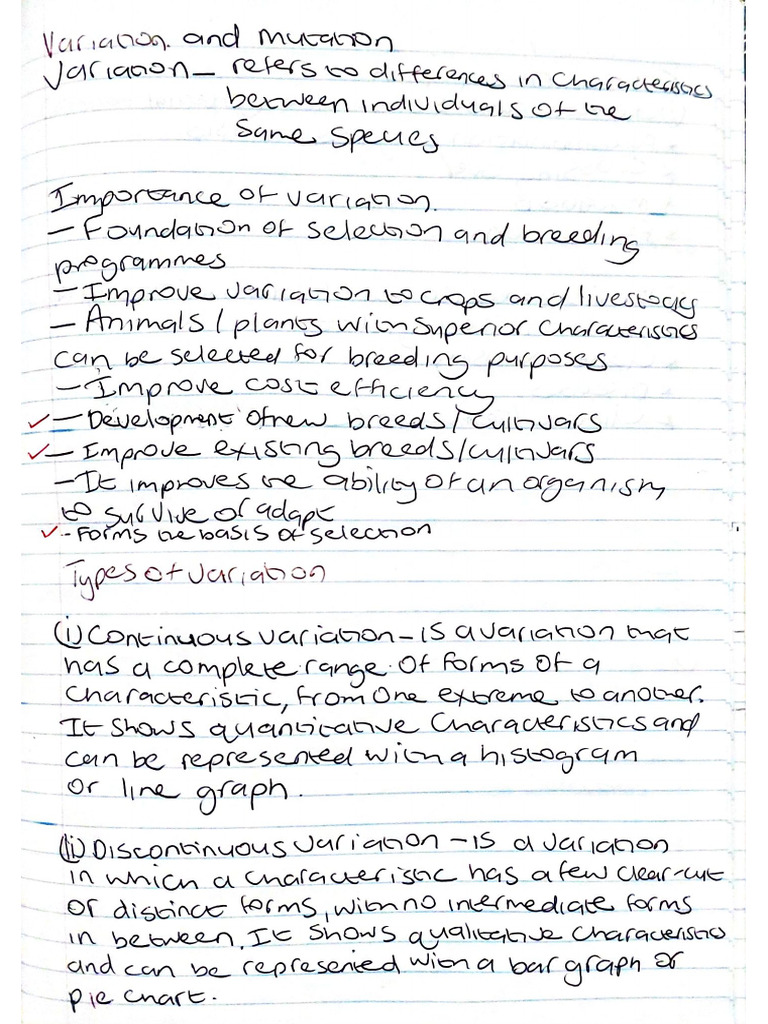 Variation and mutation
Variation – refers to differences in characteristics
between individuals of the
same species
Importance of variation.
– Foundation of selection and breeding
programmes
– Improve variation to crops and livestocks
– Animals / plants with superior characteristics
can be selected for breeding purposes
– Improve cost efficiency
✓ – Development of new breeds / cultivars
✓ – Improve existing breeds/cultivars
– It improves the ability of an organism
to survive or adapt
✓ - Forms the basis of selection
Types of variation
(i) Continuous variation – is a variation that
has a complete range of forms of a
characteristic, from one extreme to another.
It shows quantitative characteristics and
can be represented with a histogram
or line graph.
(ii) Discontinuous variation – is a variation
in which a characteristic has a few clear-cut
or distinct forms, with no intermediate forms
in between. It shows qualitative characteristics
and can be represented with a bar graph or
pie chart.